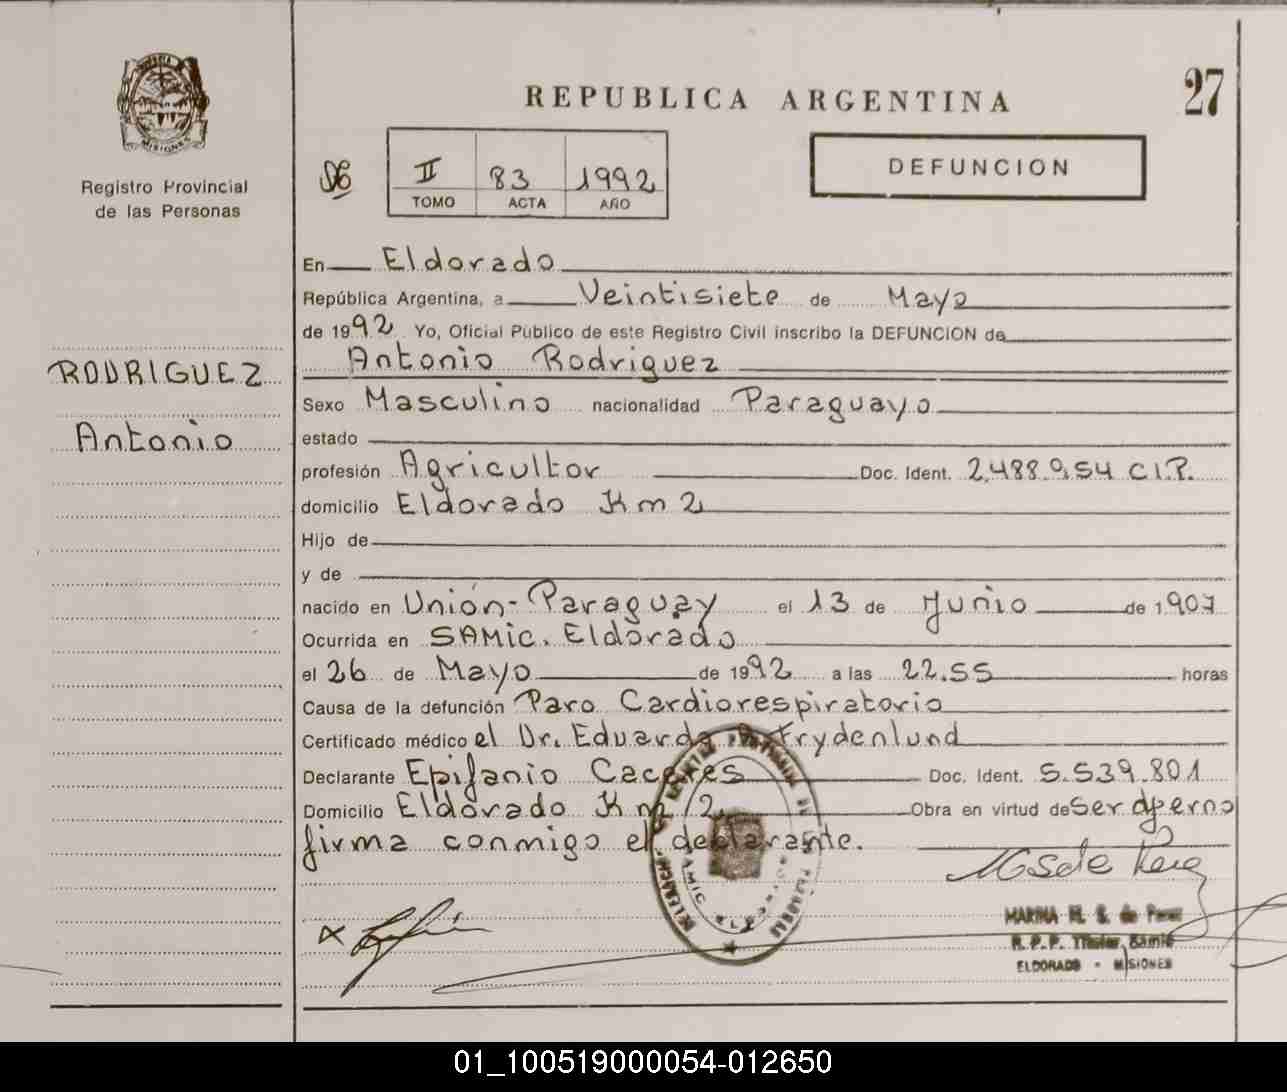 MISIONES
Registro Provincial
de las Personas
RODRIGUEZ
Antonio
REPUBLICA ARGENTINA
27
II 83 1992
TOMO ACTA AÑO
DEFUNCION
En Eldorado
República Argentina, a Veintisiete de Mayo
de 1992 Yo, Oficial Público de este Registro Civil inscribo la DEFUNCION de
Antonio Rodriguez
Sexo Masculino nacionalidad Paraguayo
estado
profesión Agricultor Doc. Ident. 2.488.954 C.I.P.
domicilio Eldorado Km 2
Hijo de
y de
nacido en Unión-Paraguay el 13 de Junio de 1907
Ocurrida en SAMic. Eldorado
el 26 de Mayo de 1992 a las 22.55 horas
Causa de la defunción Paro Cardiorespiratorio
Certificado médico el Dr. Eduardo Frydenlund
Declarante Epifanio Caceres Doc. Ident. 5.539.801
Domicilio Eldorado Km 2 Obra en virtud de ser yerno
firma conmigo el declarante.
MARINA de Perez
R. P. P. Titular Samic
ELDORADO - MISIONES
01_100519000054-012650